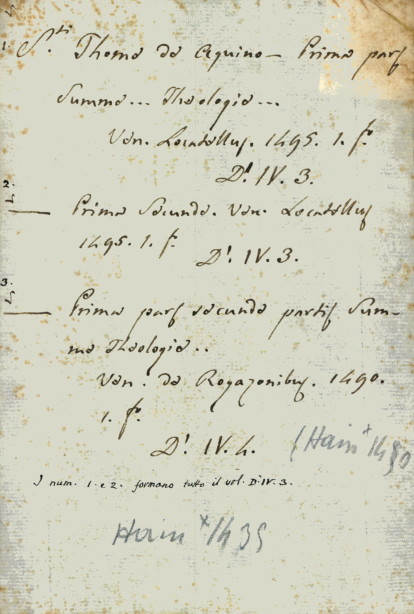 1. S.ti Thome de Aquino — Prima pars
Summe... Theologie...
Ven. Locatellus. 1495. 1. fo.
D.1 IV. 3.
2. — Prima Secunde. Ven. Locatellus
1495. 1. f.
D.1. IV. 3.
3. — Prima pars secunde partis Sum-
me Theologie..
Ven. de Rogazonibus. 1490.
1. fo.
D.1. IV. 4.
(Hain * 1450
I num. 1. e 2. formano tutto il vol. D.1 IV. 3.
Hain * 1439